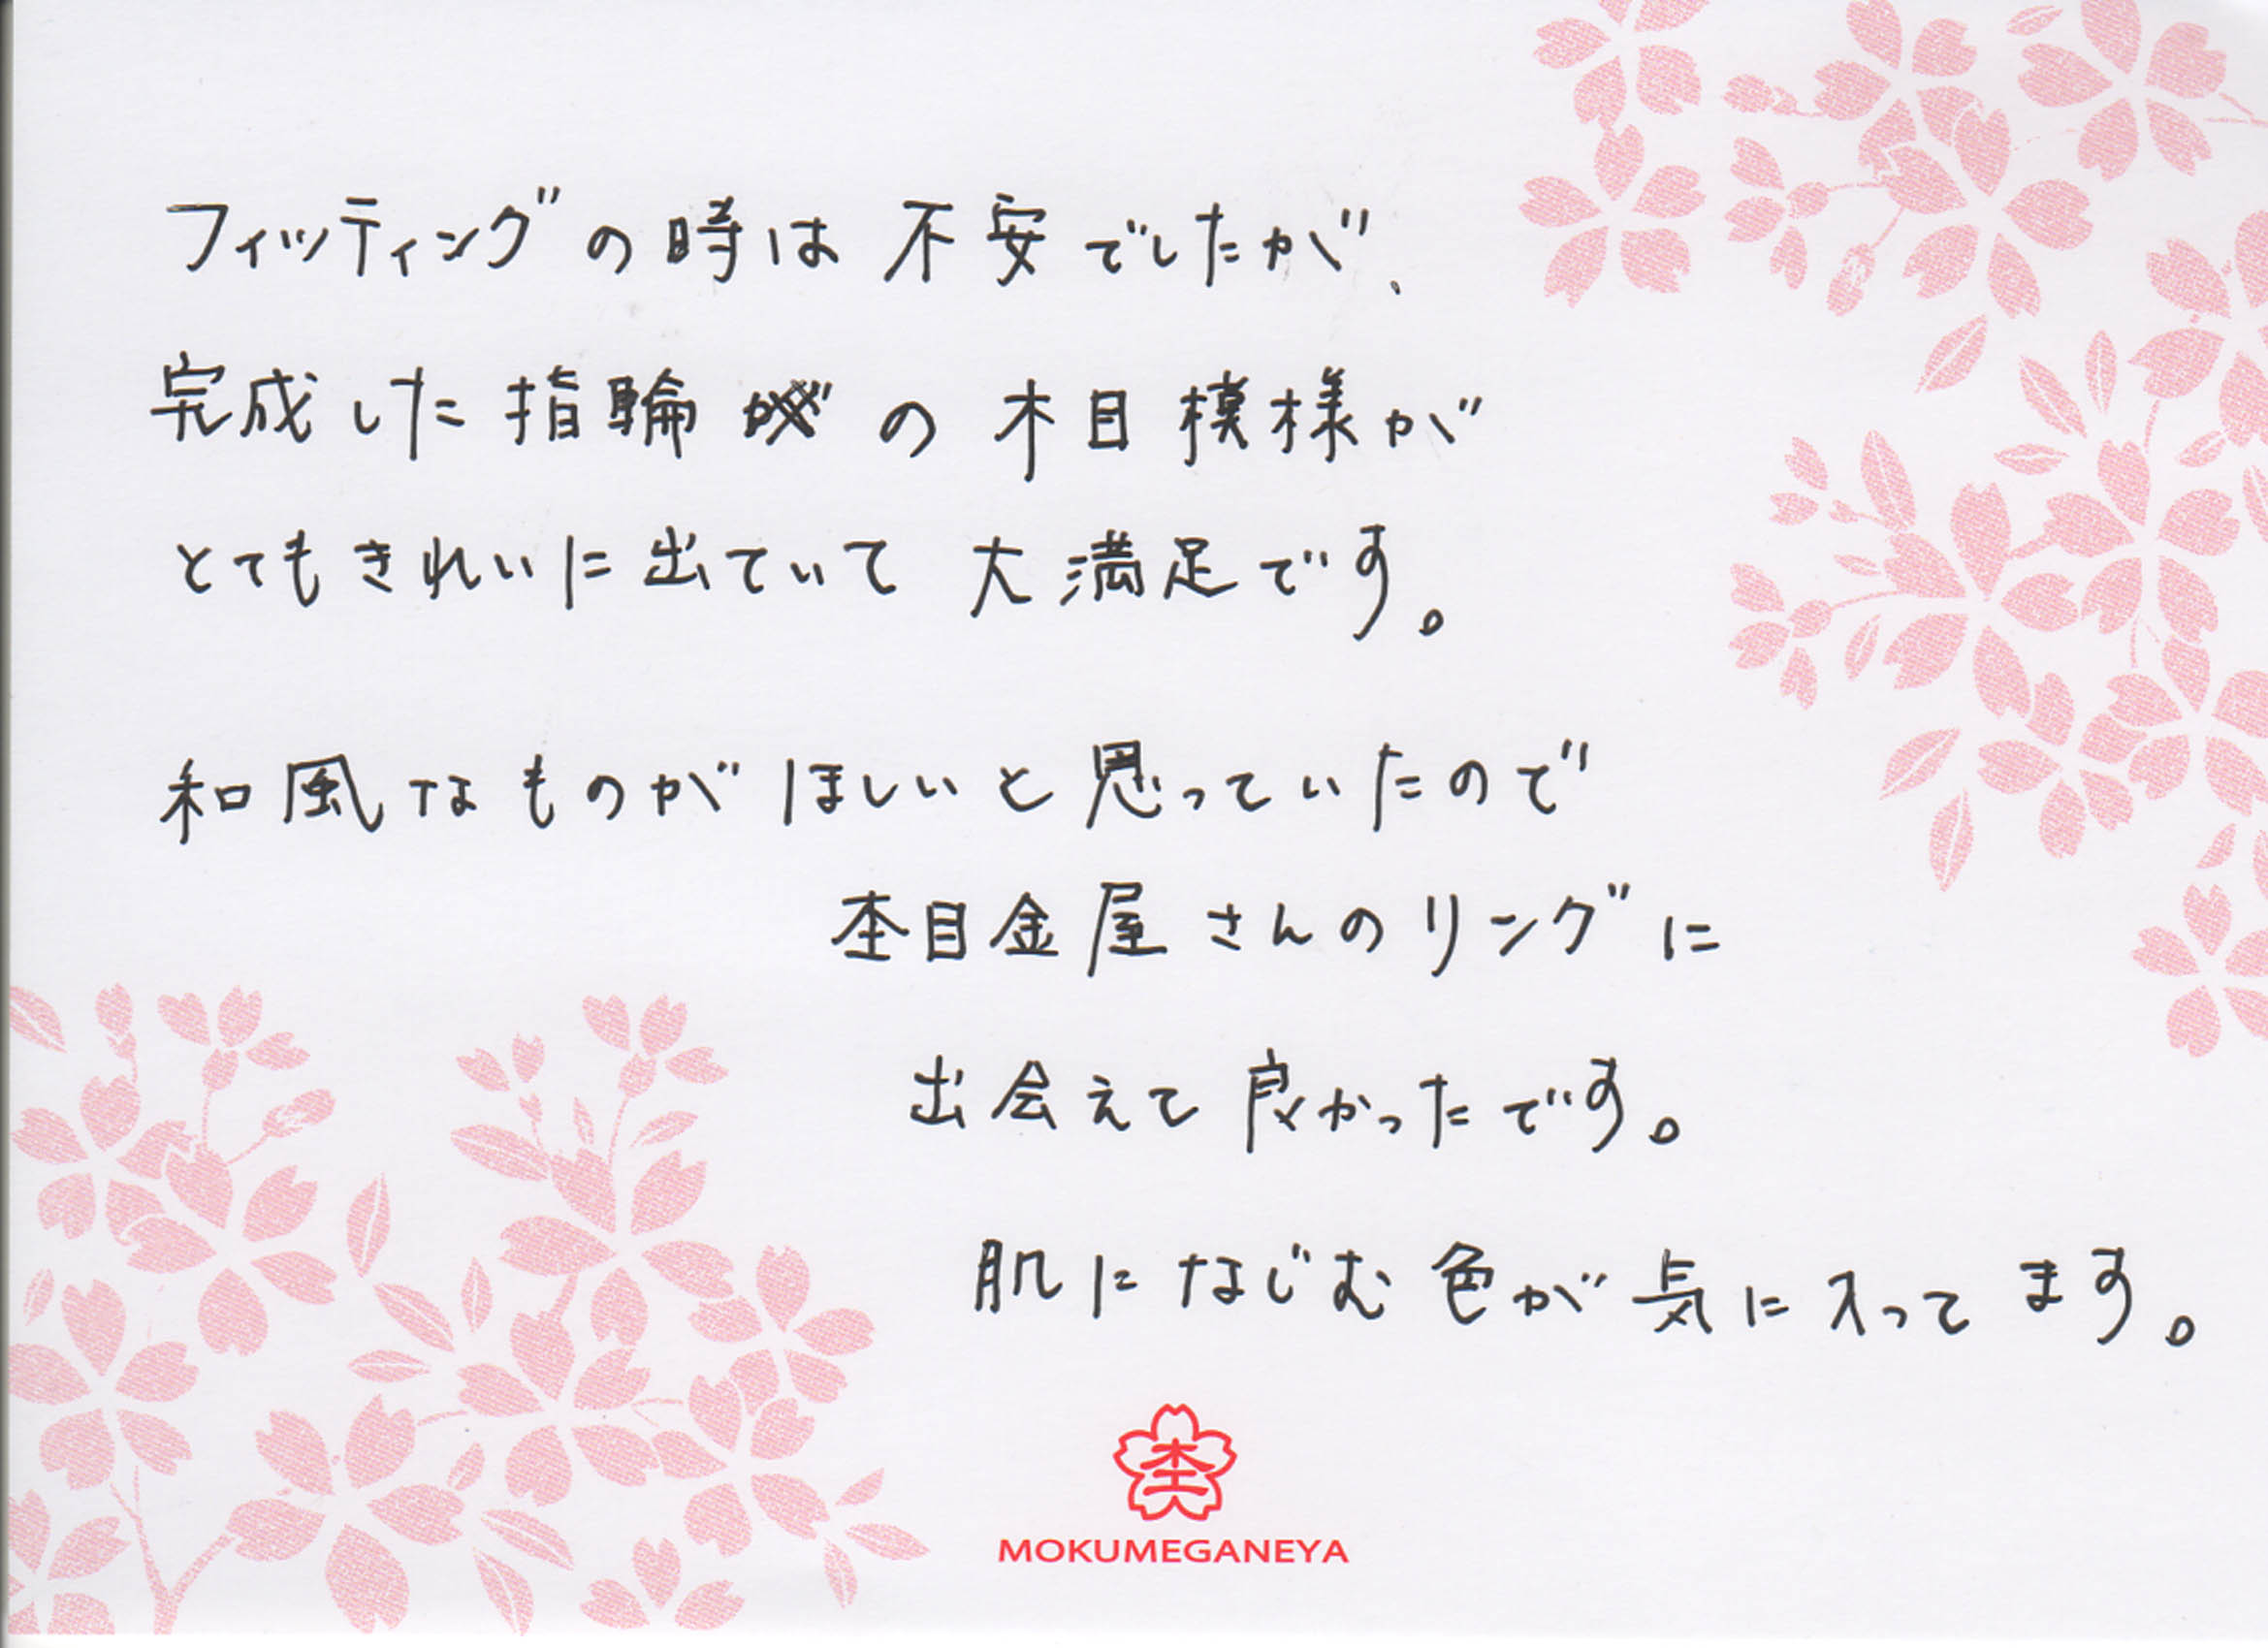 フィッティングの時は不安でしたが、
完成した指輪の木目模様が
とてもきれいに出ていて大満足です。
和風なものがほしいと思っていたので
杢目金屋さんのリングに
出会えて良かったです。
肌になじむ色が気に入ってます。
杢
MOKUMEGANEYA